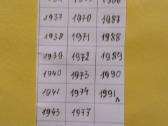 1937 1970 1987
1938 1971 1988
1939 1972 1989
1940 1973 1990
1941 1974 1991
1943 1977